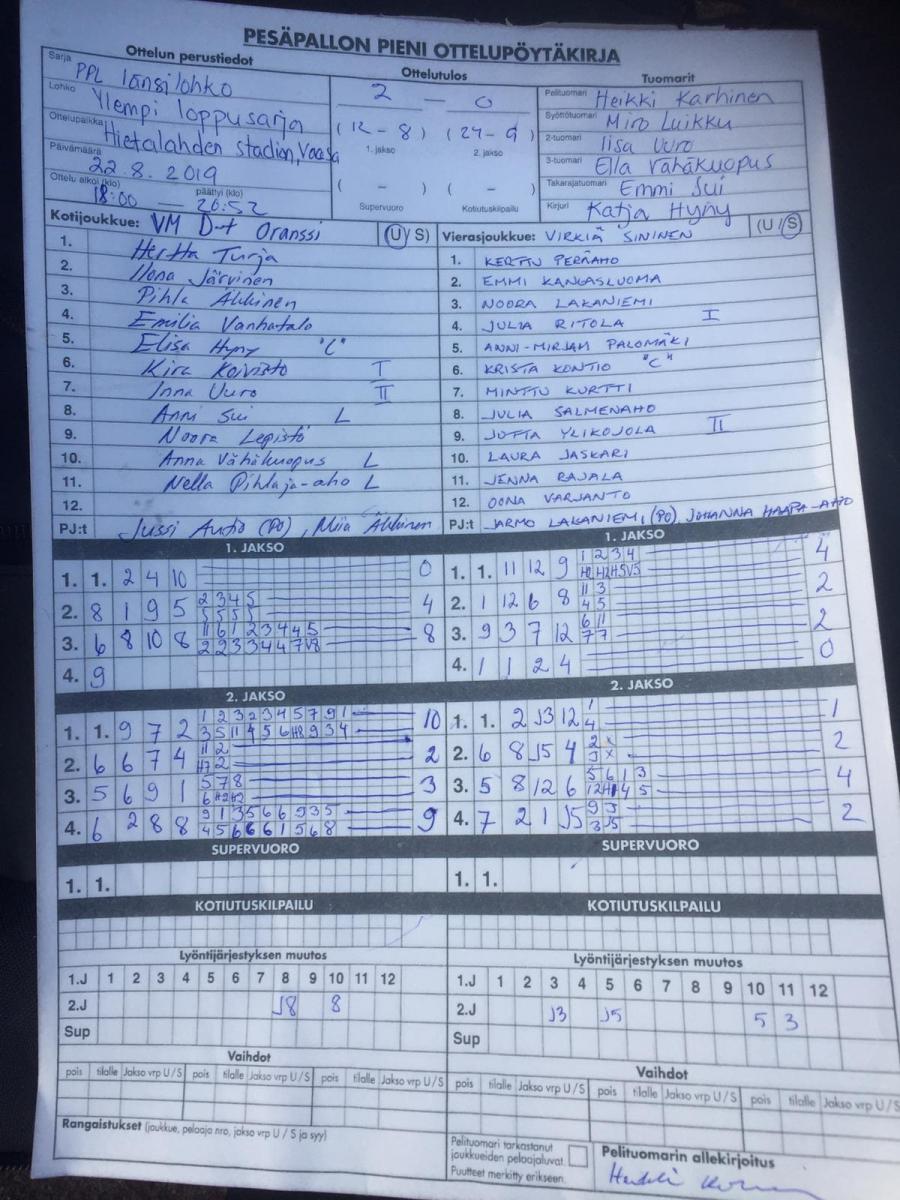 PESÄPALLON PIENI OTTELUPÖYTÄKIRJA
Ottelun perustiedot
Sarja PPL länsilohko
Lohko Ylempi loppusarja
Ottelupaikka Hietalahden stadion, Vaasa
Päivämäärä 22.8.2019
Ottelu alkoi (klo) päättyi (klo)
18:00 — 20:52
Ottelutulos
2 — 0
(12-8) (24-9)
1. jakso 2. jakso
( - ) ( - )
Supervuoro Kotiutuskilpailu
Tuomarit
Pelituomari Heikki Karhinen
Syöttötuomari Miro Luikku
2-tuomari Iisa Uuro
3-tuomari Ella Vähäkuopus
Takarajatuomari Emmi Sui
Kirjuri Katja Hyny
Kotijoukkue: VM D-t Oranssi (U/S)
1. Hertta Turja
2. Ilona Järvinen
3. Pihla Äkkinen
4. Emilia Vanhatalo
5. Elisa Hyny "C"
6. Kira Koivisto I
7. Inna Uuro II
8. Anni Sui L
9. Noora Lepistö
10. Anna Vähäkuopus L
11. Nella Pihlaja-aho L
12.
PJ:t Jussi Autio (PO), Miia Äkkinen
Vierasjoukkue: VIRKIÄ SININEN (U/S)
1. KERTTU PERÄAHO
2. EMMI KANGASLUOMA
3. NOORA LAKANIEMI
4. JULIA RITOLA I
5. ANNI-MIRJAM PALOMÄKI
6. KRISTA KONTIO "C"
7. MINTTU KURTTI
8. JULIA SALMENAHO
9. JUTTA YLIKOJOLA II
10. LAURA JASKARI
11. JENNA RAJALA
12. OONA VARJANTO
PJ:t JARMO LAKANIEMI, (PO), JOHANNA HAAPA-AHO
1. JAKSO
1. 1. 2 4 10 0
2. 8 1 9 5 2 3 4 5 4
5 5 5 5
3. 6 8 10 8 11 6 1 2 3 4 4 5 8
2 2 3 3 4 4 7 V8
4. 9
1. JAKSO
1. 1. 11 12 9 1 2 3 4 4
2. 1 12 6 8 11 3 2
4 5
3. 9 3 7 12 6 11 2
7 7
4. 1 1 2 4 0
2. JAKSO
1. 1. 9 7 2 1 2 3 2 3 4 5 7 9 1 10
3 5 11 4 5 6 H8 9 3 4
2. 6 6 7 4 11 2 2
H7 2
3. 5 6 9 1 5 7 8 3
6 H2 H2
4. 6 2 8 8 9 1 3 5 6 6 9 3 5 9
4 5 6 6 6 1 5 6 8
2. JAKSO
1. 1. 2 J3 12 1 1
4
2. 6 8 J5 4 2x 2
3x
3. 5 8 12 6 5 6 1 3 4
12 H1 4 5
4. 7 2 1 J5 9 3 2
3 J5
SUPERVUORO
1. 1.
SUPERVUORO
1. 1.
KOTIUTUSKILPAILU
KOTIUTUSKILPAILU
Lyöntijärjestyksen muutos
1.J 1 2 3 4 5 6 7 8 9 10 11 12
2.J J8 8
Sup
Lyöntijärjestyksen muutos
1.J 1 2 3 4 5 6 7 8 9 10 11 12
2.J J3 J5 5 3
Sup
Vaihdot
pois tilalle Jakso vrp U/S pois tilalle Jakso vrp U/S pois tilalle Jakso vrp U/S
Vaihdot
pois tilalle Jakso vrp U/S pois tilalle Jakso vrp U/S pois tilalle Jakso vrp U/S
Rangaistukset (joukkue, pelaaja nro, jakso vrp U / S ja syy)
Pelituomari tarkastanut
joukkueiden pelaajaluvat.
Puutteet merkitty erikseen.
Pelituomarin allekirjoitus